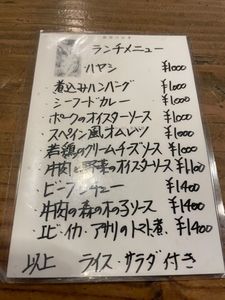 ランチメニュー
ハヤシ ¥1000
煮込みハンバーグ ¥1000
シーフードカレー ¥1000
・ポークのオイスターソース ¥1000
・スペイン風オムレツ ¥1000
若鶏のクリームチーズソース ¥1000
・牛肉と野菜のオイスターソース ¥1100
・ビーフシチュー ¥1400
・牛肉の森の木の子ソース ¥1400
・エビ・イカ・アサリのトマト煮 ¥1400
以上 ライス・サラダ付き